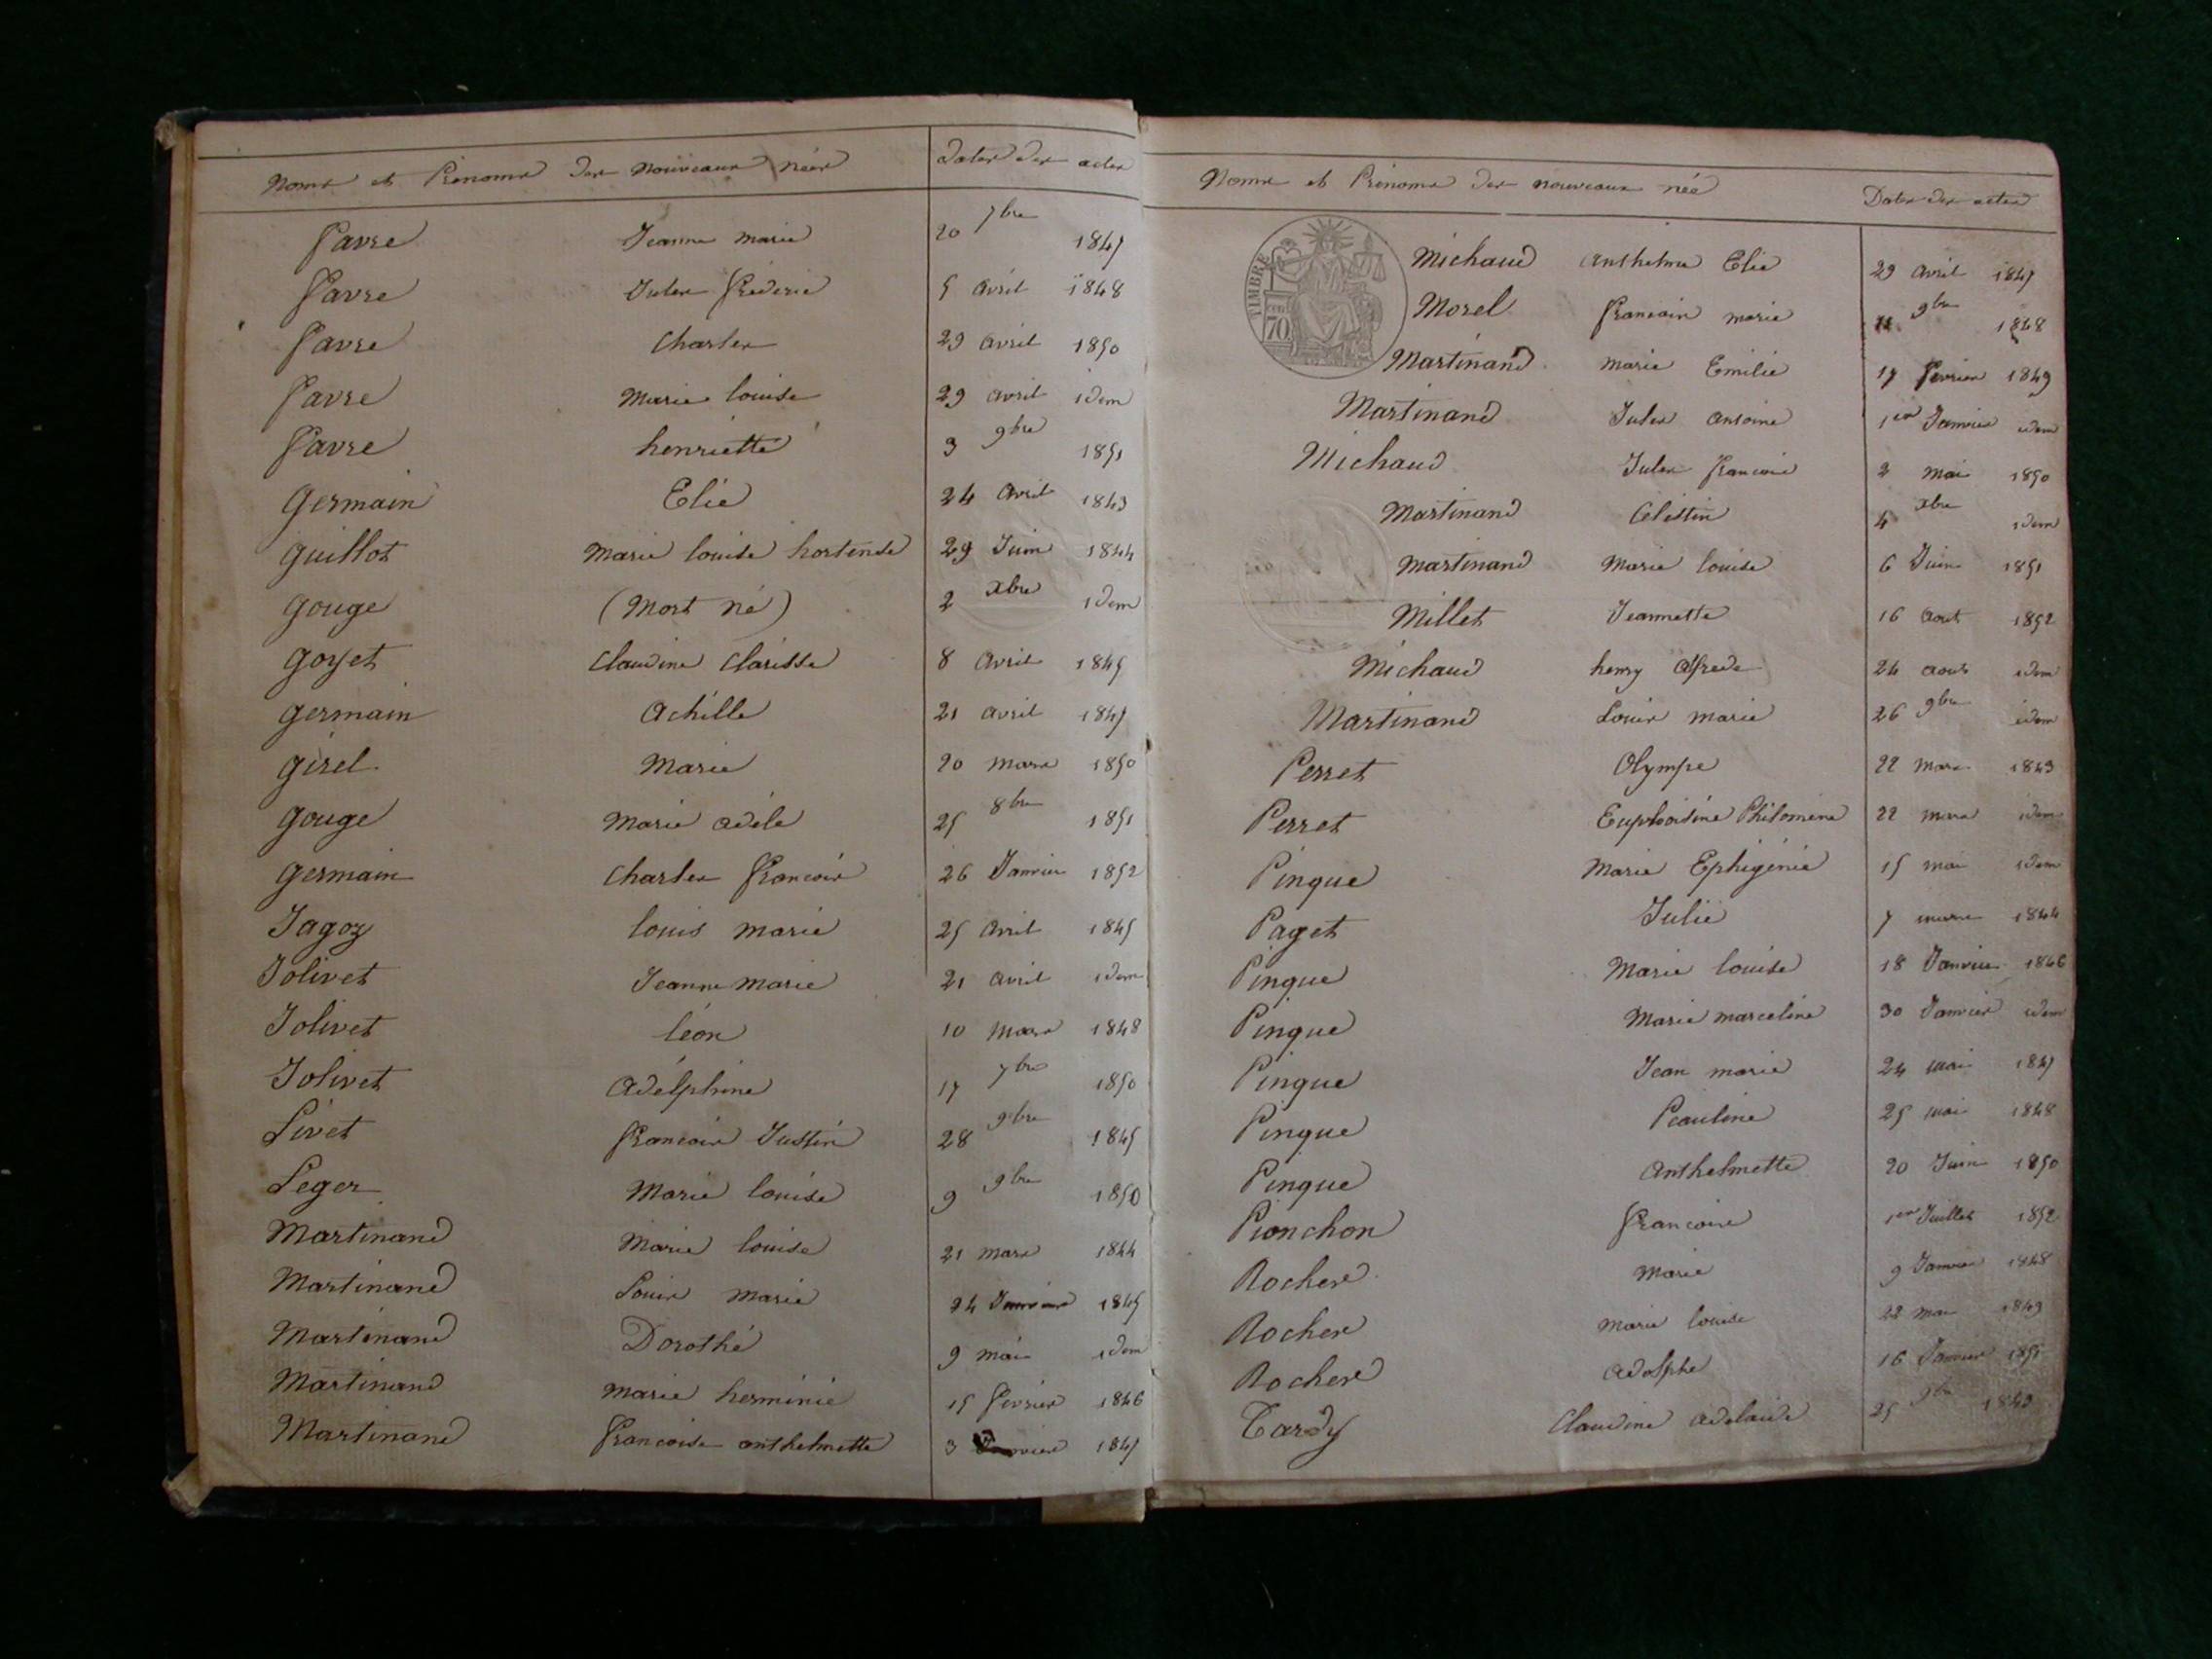 Noms et Prénoms des nouveaux néés Dates des actes
Favre Jeanne marie 20 7bre 1847
Favre Jules fréderic 5 avril 1848
Favre Charles 29 avril 1850
Favre Marie louise 29 avril idem
Favre henriette 3 9bre 1851
Germain Elie 24 avril 1843
Guillot Marie louise hortense 29 Juin 1844
Gouge (Mort né) 2 xbre idem
Goyet Claudine Clarisse 8 avril 1845
Germain Achille 21 avril 1847
Girel Marie 20 mars 1850
Gouge Marie adèle 25 8bre 1851
Germain Charles françois 26 Janvier 1852
Jagoz louis marie 25 avril 1845
Jolivet Jeanne marie 21 avril idem
Jolivet léon 10 mars 1848
Jolivet Adélphine 17 7bre 1850
Livet françois Justin 28 9bre 1845
Léger Marie louise 9 9bre 1850
Martinand Marie louise 21 mars 1844
Martinand Louis marie 24 Janvier 1845
Martinand Dorothé 9 mai idem
Martinand marie herminie 15 février 1846
Martinand françoise anthelmette 3 Janvier 1847
Noms et Prénoms des nouveaux néé Dates des actes
TIMBRE
70
Michaud anthelme Elie 29 avril 1847
Morel françois marie 9bre 1848
Martinand marie Emilie 17 février 1849
Martinand Jules antoine 1er Janvier idem
Michaud Jules françois 2 mai 1850
Martinand Célestin 4 xbre idem
Martinand Marie louise 6 Juin 1851
Millet Jeannette 16 aout 1852
Michaud henry Alfrede 24 aout idem
Martinand Louis marie 26 9bre idem
Perret Olympe 22 mars 1843
Perret Euphoisine Philomène 22 mars idem
Pingue Marie Ephigénie 15 mai idem
Paget Julie 7 mars 1844
Pingue Marie louise 18 Janvier 1846
Pingue Marie marceline 30 Janvier idem
Pingue Jean marie 24 mai 1847
Pingue Peauline 25 mai 1848
Pingue Anthelmette 20 Juin 1850
Pionchon françoise 1er Juillet 1852
Rochere Marie 9 Janvier 1848
Rochere Marie louise 22 mai 1849
Rochere Adolphe 16 Janvier 1851
Tardy Claudine adelaide 25 9bre 1843